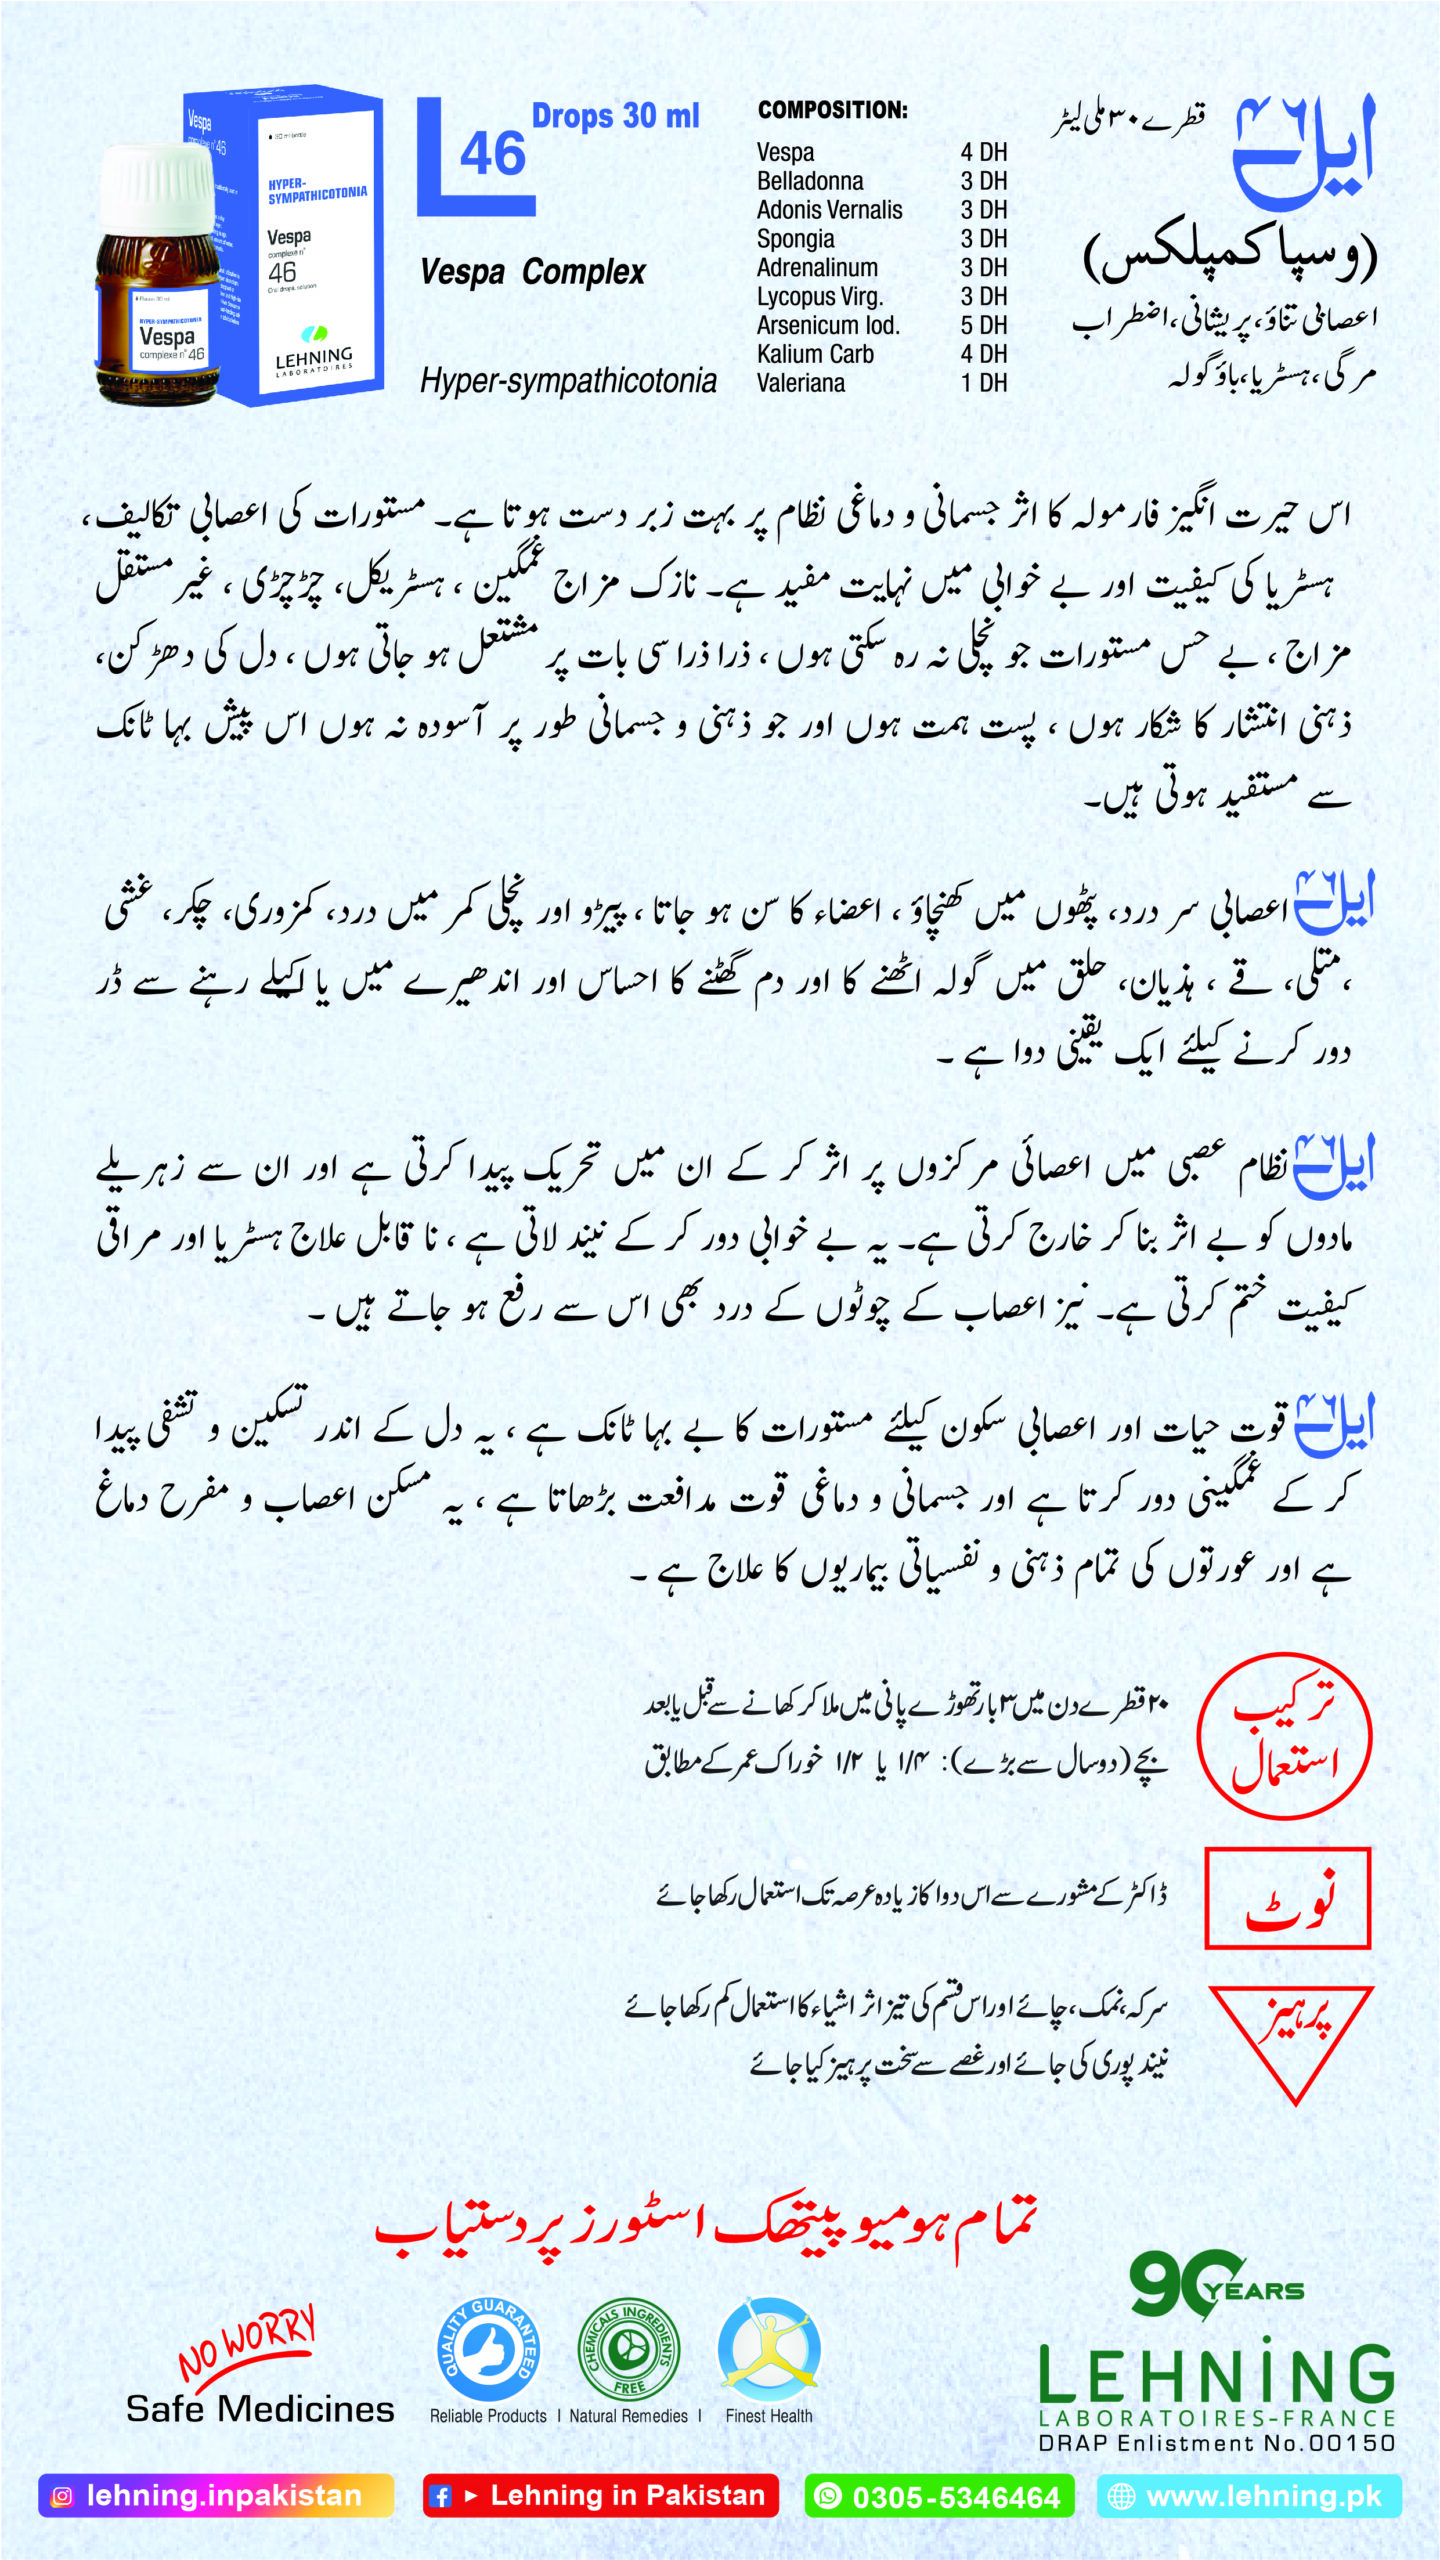 Vespa
complexe n° 46
30 ml bottle
HYPER-
SYMPATHICOTONIA
Vespa
complexe n°
46
Oral drops, solution
LEHNING
LABORATOIRES
Flacon 30 ml
HYPER-SYMPATHICOTONIA
Vespa
complexe n° 46
L 46
Drops 30 ml
Vespa Complex
Hyper-sympathicotonia
COMPOSITION:
Vespa 4 DH
Belladonna 3 DH
Adonis Vernalis 3 DH
Spongia 3 DH
Adrenalinum 3 DH
Lycopus Virg. 3 DH
Arsenicum Iod. 5 DH
Kalium Carb 4 DH
Valeriana 1 DH
ایل ۴۶ قطرے ۳۰ ملی لیٹر
(وسپا کمپلکس)
اعصابی تناؤ، پریشانی، اضطراب
مرگی، ہسٹریا، باؤ گولہ
اس حیرت انگیز فارمولہ کا اثر جسمانی و دماغی نظام پر بہت زبر دست ہوتا ہے۔ مستورات کی اعصابی تکالیف،
ہسٹریا کی کیفیت اور بے خوابی میں نہایت مفید ہے۔ نازک مزاج غمگین ، ہسٹریکل، چڑچڑی ، غیر مستقل
مزاج ، بے حس مستورات جو نچلی نہ رہ سکتی ہوں ، ذرا ذرا سی بات پر مشتعل ہو جاتی ہوں ، دل کی دھڑکن،
ذہنی انتشار کا شکار ہوں ، پست ہمت ہوں اور جو ذہنی و جسمانی طور پر آسودہ نہ ہوں اس پیش بہا ٹانک
سے مستفید ہوتی ہیں۔
ایل ۴۶ اعصابی سر درد، پٹھوں میں کھنچاؤ ، اعضاء کا سن ہو جاتا ، پیڑو اور نچلی کمر میں درد، کمزوری، چکر، غشی
،متلی، قے ، ہذیان، حلق میں گولہ اٹھنے کا اور دم گھٹنے کا احساس اور اندھیرے میں یا اکیلے رہنے سے ڈر
دور کرنے کیلئے ایک یقینی دوا ہے ۔
ایل ۴۶ نظام عصبی میں اعصائی مرکزوں پر اثر کر کے ان میں تحریک پیدا کرتی ہے اور ان سے زہریلے
مادوں کو بے اثر بنا کر خارج کرتی ہے۔ یہ بے خوابی دور کر کے نیند لاتی ہے ، نا قابل علاج ہسٹریا اور مراقی
کیفیت ختم کرتی ہے۔ نیز اعصاب کے چوٹوں کے درد بھی اس سے رفع ہو جاتے ہیں ۔
ایل ۴۶ قوت حیات اور اعصابی سکون کیلئے مستورات کا بے بہا ٹانک ہے ، یہ دل کے اندر تسکین و تشفی پیدا
کر کے غمگینی دور کرتا ہے اور جسمانی و دماغی قوت مدافعت بڑھاتا ہے ، یہ مسکن اعصاب و مفرح دماغ
ہے اور عورتوں کی تمام ذہنی و نفسیاتی بیماریوں کا علاج ہے ۔
ترکیب
استعمال
۲۰ قطرے دن میں ۳ بار تھوڑے پانی میں ملا کر کھانے سے قبل یا بعد
بچے (دو سال سے بڑے): ۱/۴ یا ۱/۲ خوراک عمر کے مطابق
نوٹ
ڈاکٹر کے مشورے سے اس دوا کا زیادہ عرصہ تک استعمال رکھا جائے
پرہیز
سرکہ، نمک، چائے اور اس قسم کی تیز اثر اشیاء کا استعمال کم رکھا جائے
نیند پوری کی جائے اور غصے سے سخت پرہیز کیا جائے
تمام ہومیو پیتھک اسٹورز پر دستیاب
NO WORRY
Safe Medicines
QUALITY GUARANTEED
Reliable Products I
CHEMICALS INGREDIENTS FREE
Natural Remedies I
Finest Health
90 YEARS
LEHNING
LABORATOIRES-FRANCE
DRAP Enlistment No.00150
lehning.inpakistan
Lehning in Pakistan
0305-5346464
www.lehning.pk